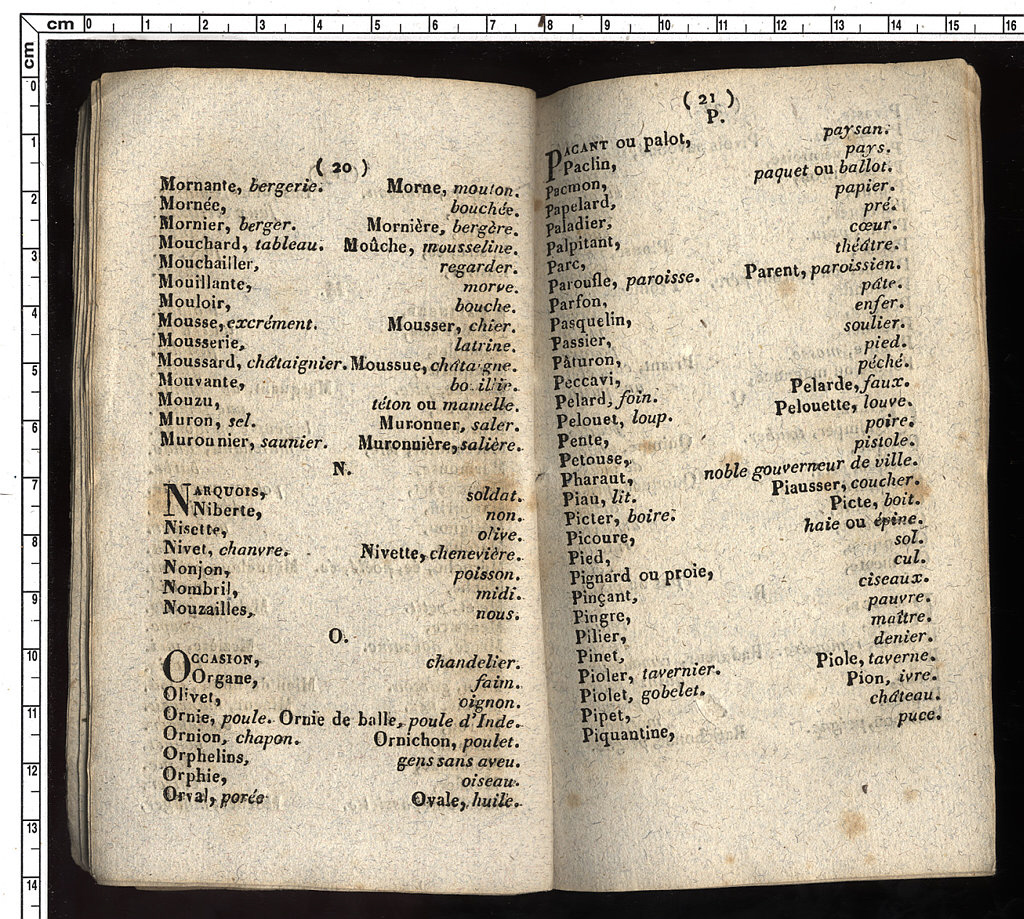 cm 0 1 2 3 4 5 6 7 8 9 10 11 12 13 14 15 16
cm 0 1 2 3 4 5 6 7 8 9 10 11 12 13 14
( 20 )
Mornante, bergerie. Morne, mouton.
Mornée, bouchée.
Mornier, berger. Mornière, bergère.
Mouchard, tableau. Moûche, mousseline.
Mouchailler, regarder.
Mouillante, morve.
Mouloir, bouche.
Mousse, excrément. Mousser, chier.
Mousserie, latrine.
Moussard, châtaignier. Moussue, châtaigne.
Mouvante, bouillie.
Mouzu, téton ou mamelle.
Muron, sel. Muronner, saler.
Muronnier, saunier. Muronnière, salière.
N.
NARQUOIS, soldat.
Niberte, non.
Nisette, olive.
Nivet, chanvre. Nivette, chenevière.
Nonjon, poisson.
Nombril, midi.
Nouzailles, nous.
O.
OCCASION, chandelier.
Organe, faim.
Olivet, oignon.
Ornie, poule. Ornie de balle, poule d'Inde.
Ornion, chapon. Ornichon, poulet.
Orphelins, gens sans aveu.
Orphie, oiseau.
Orval, porée Ovale, huile.
( 21 )
P.
PACANT ou palot, paysan.
Paclin, pays.
Pacmon, paquet ou ballot.
Papelard, papier.
Paladier, pré.
Palpitant, cœur.
Parc, théâtre.
Paroufle, paroisse. Parent, paroissien.
Parfon, pâte.
Pasquelin, enfer.
Passier, soulier.
Pâturon, pied.
Peccavi, péché.
Pelard, foin. Pelarde, faux.
Pelouet, loup. Pelouette, louve.
Pente, poire.
Petouse, pistole.
Pharaut, noble gouverneur de ville.
Piau, lit. Piausser, coucher.
Picter, boire. Picte, boit.
Picoure, haie ou épine.
Pied, sol.
Pignard ou proie, cul.
Pinçant, ciseaux.
Pingre, pauvre.
Pilier, maître.
Pinet, denier.
Pioler, tavernier. Piole, taverne.
Piolet, gobelet. Pion, ivre.
Pipet, château.
Piquantine, puce.